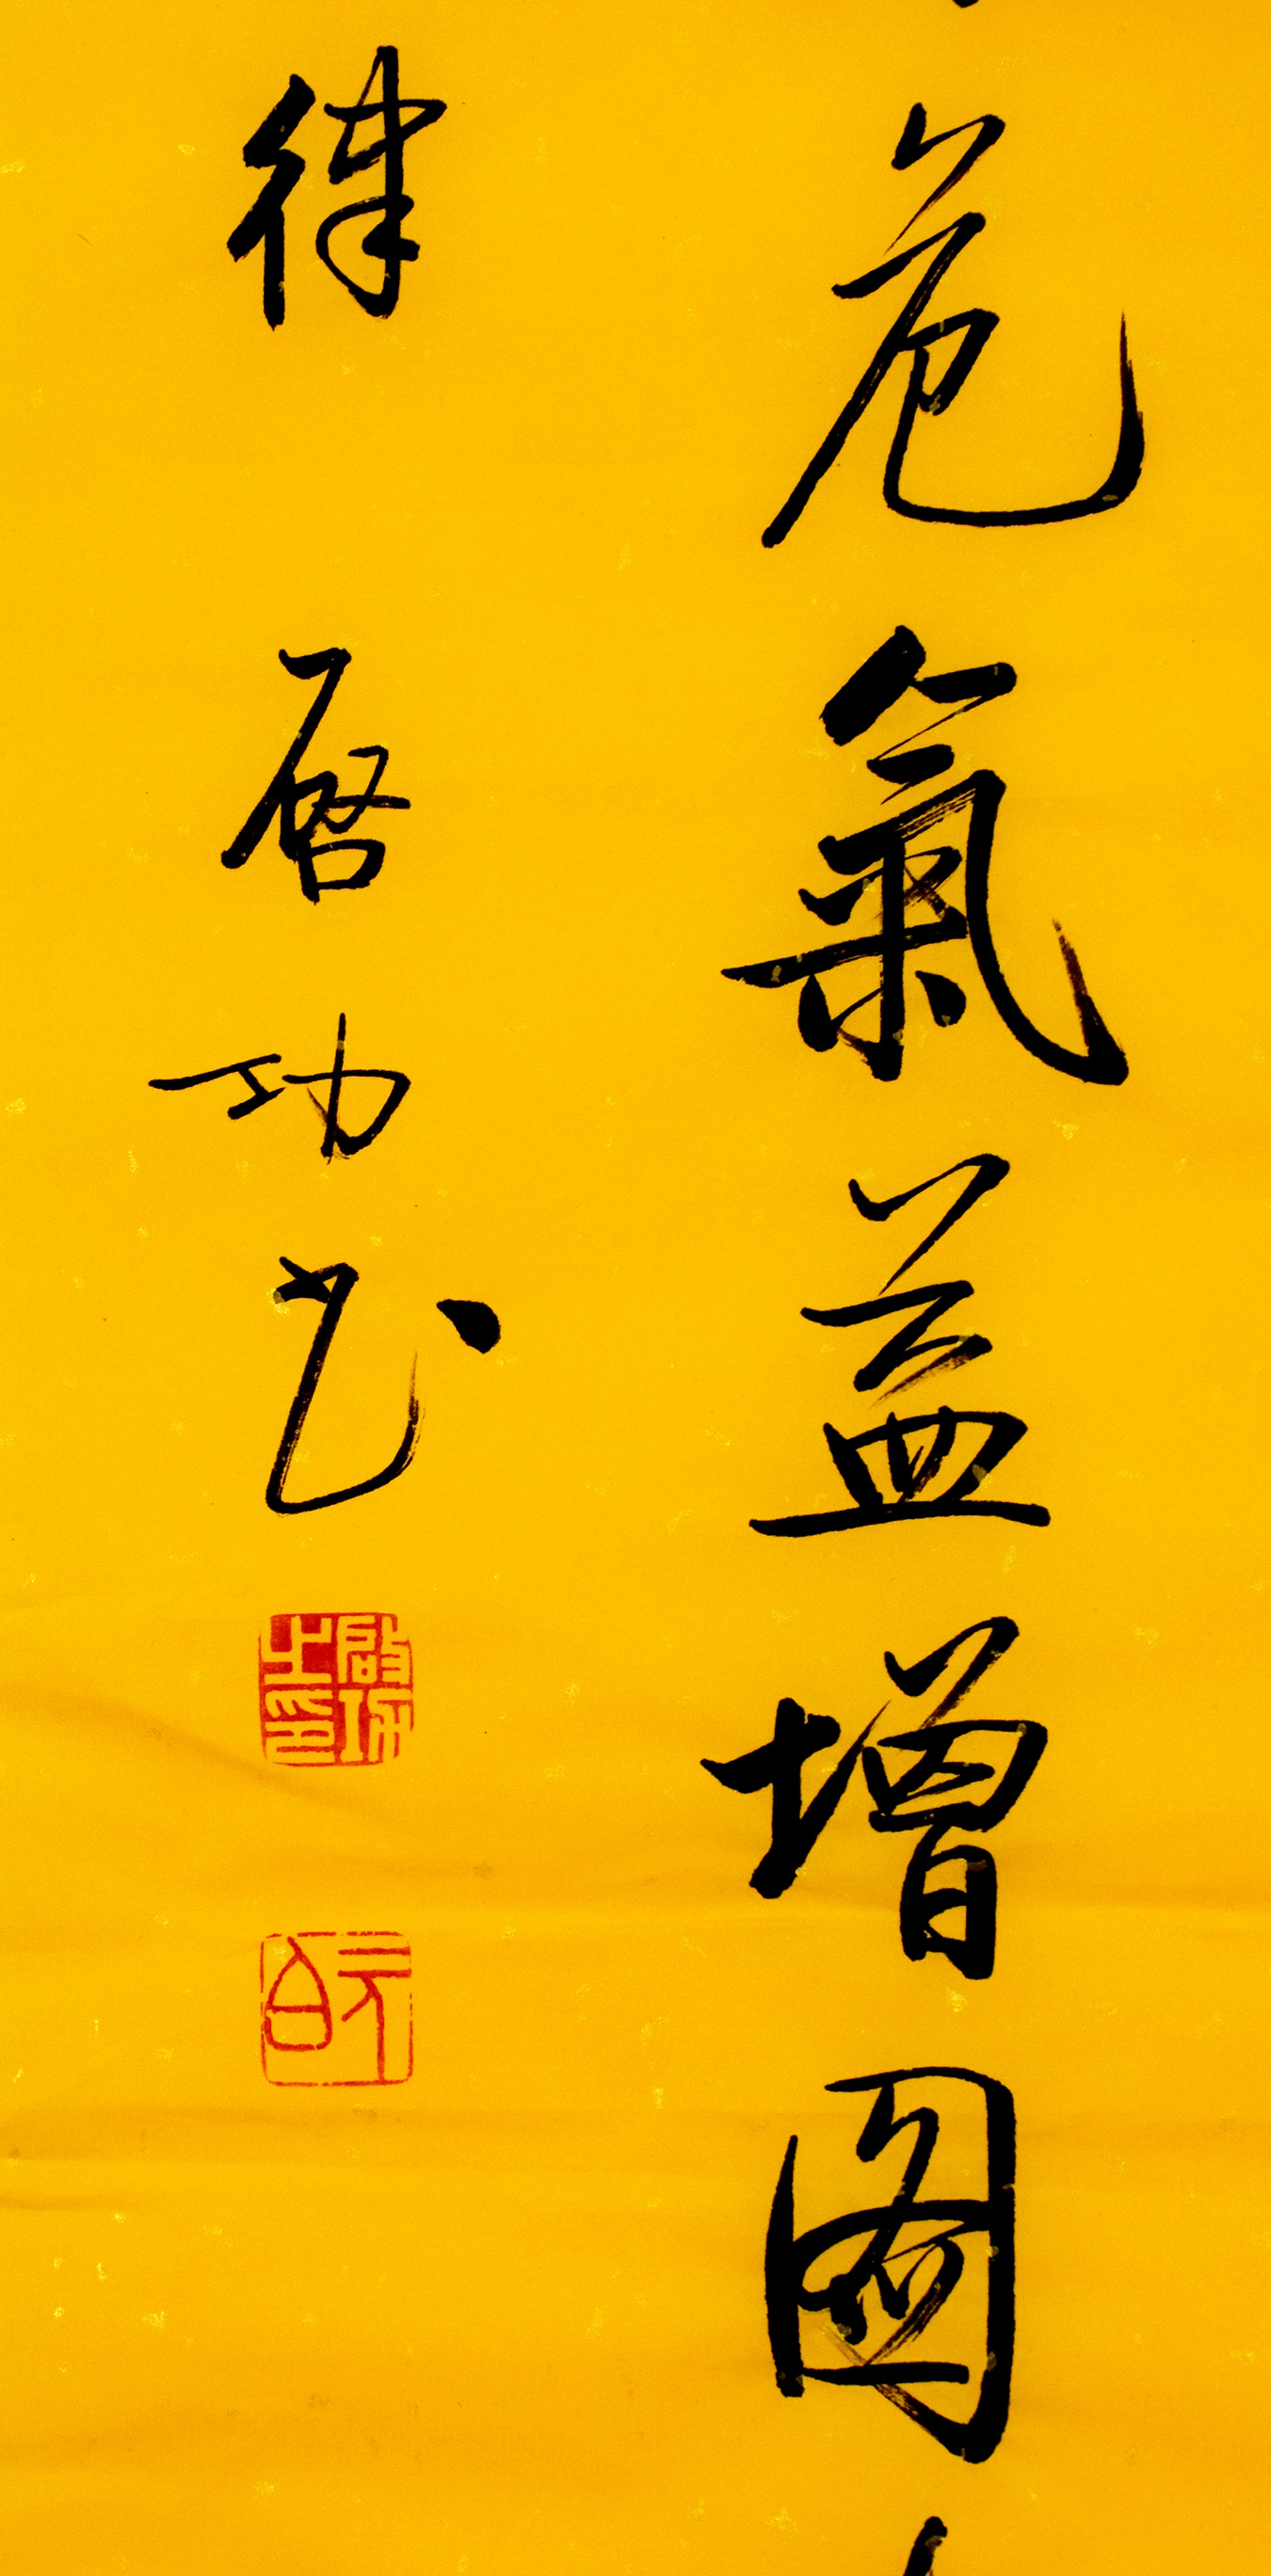 危氣益增圖
律 啓功書
啟功之印
元白